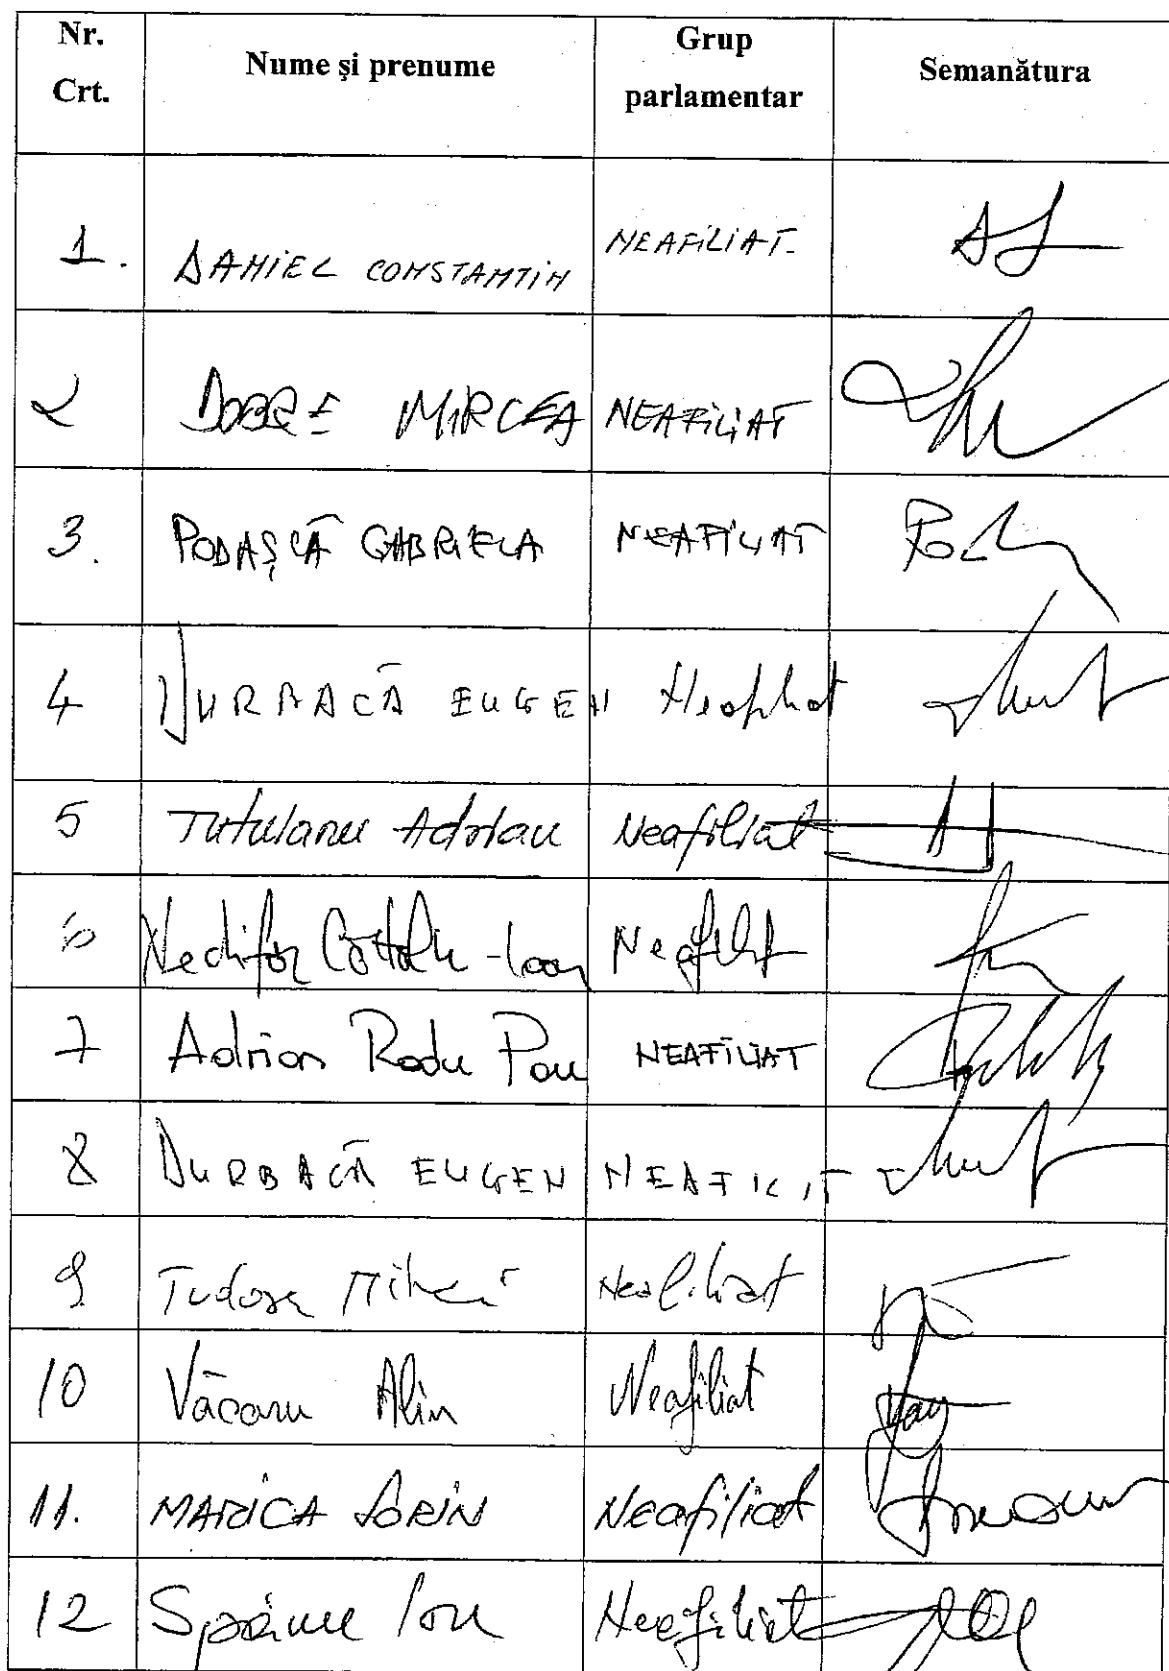 Nr. Crt. Nume și prenume Grup parlamentar Semanătura
1. DANIEL CONSTANTIN NEAFILIAT.
2 DOBRE MIRCEA NEAFILIAT
3. PODAȘCĂ GABRIELA NEAFILIAT
4 DURBACĂ EUGEN Neafiliat
5 Tutulanu Adrian Neafiliat
6 Nechifor Cătălin-Ioan Neafiliat
7 Adrian Radu Pau NEAFILIAT
8 DURBACĂ EUGEN NEAFILIT
9 Tudose Mihai Neafiliat
10 Văcaru Alin Neafiliat
11. MARICA SORIN Neafiliat
12 Spânu Ion Neafiliat